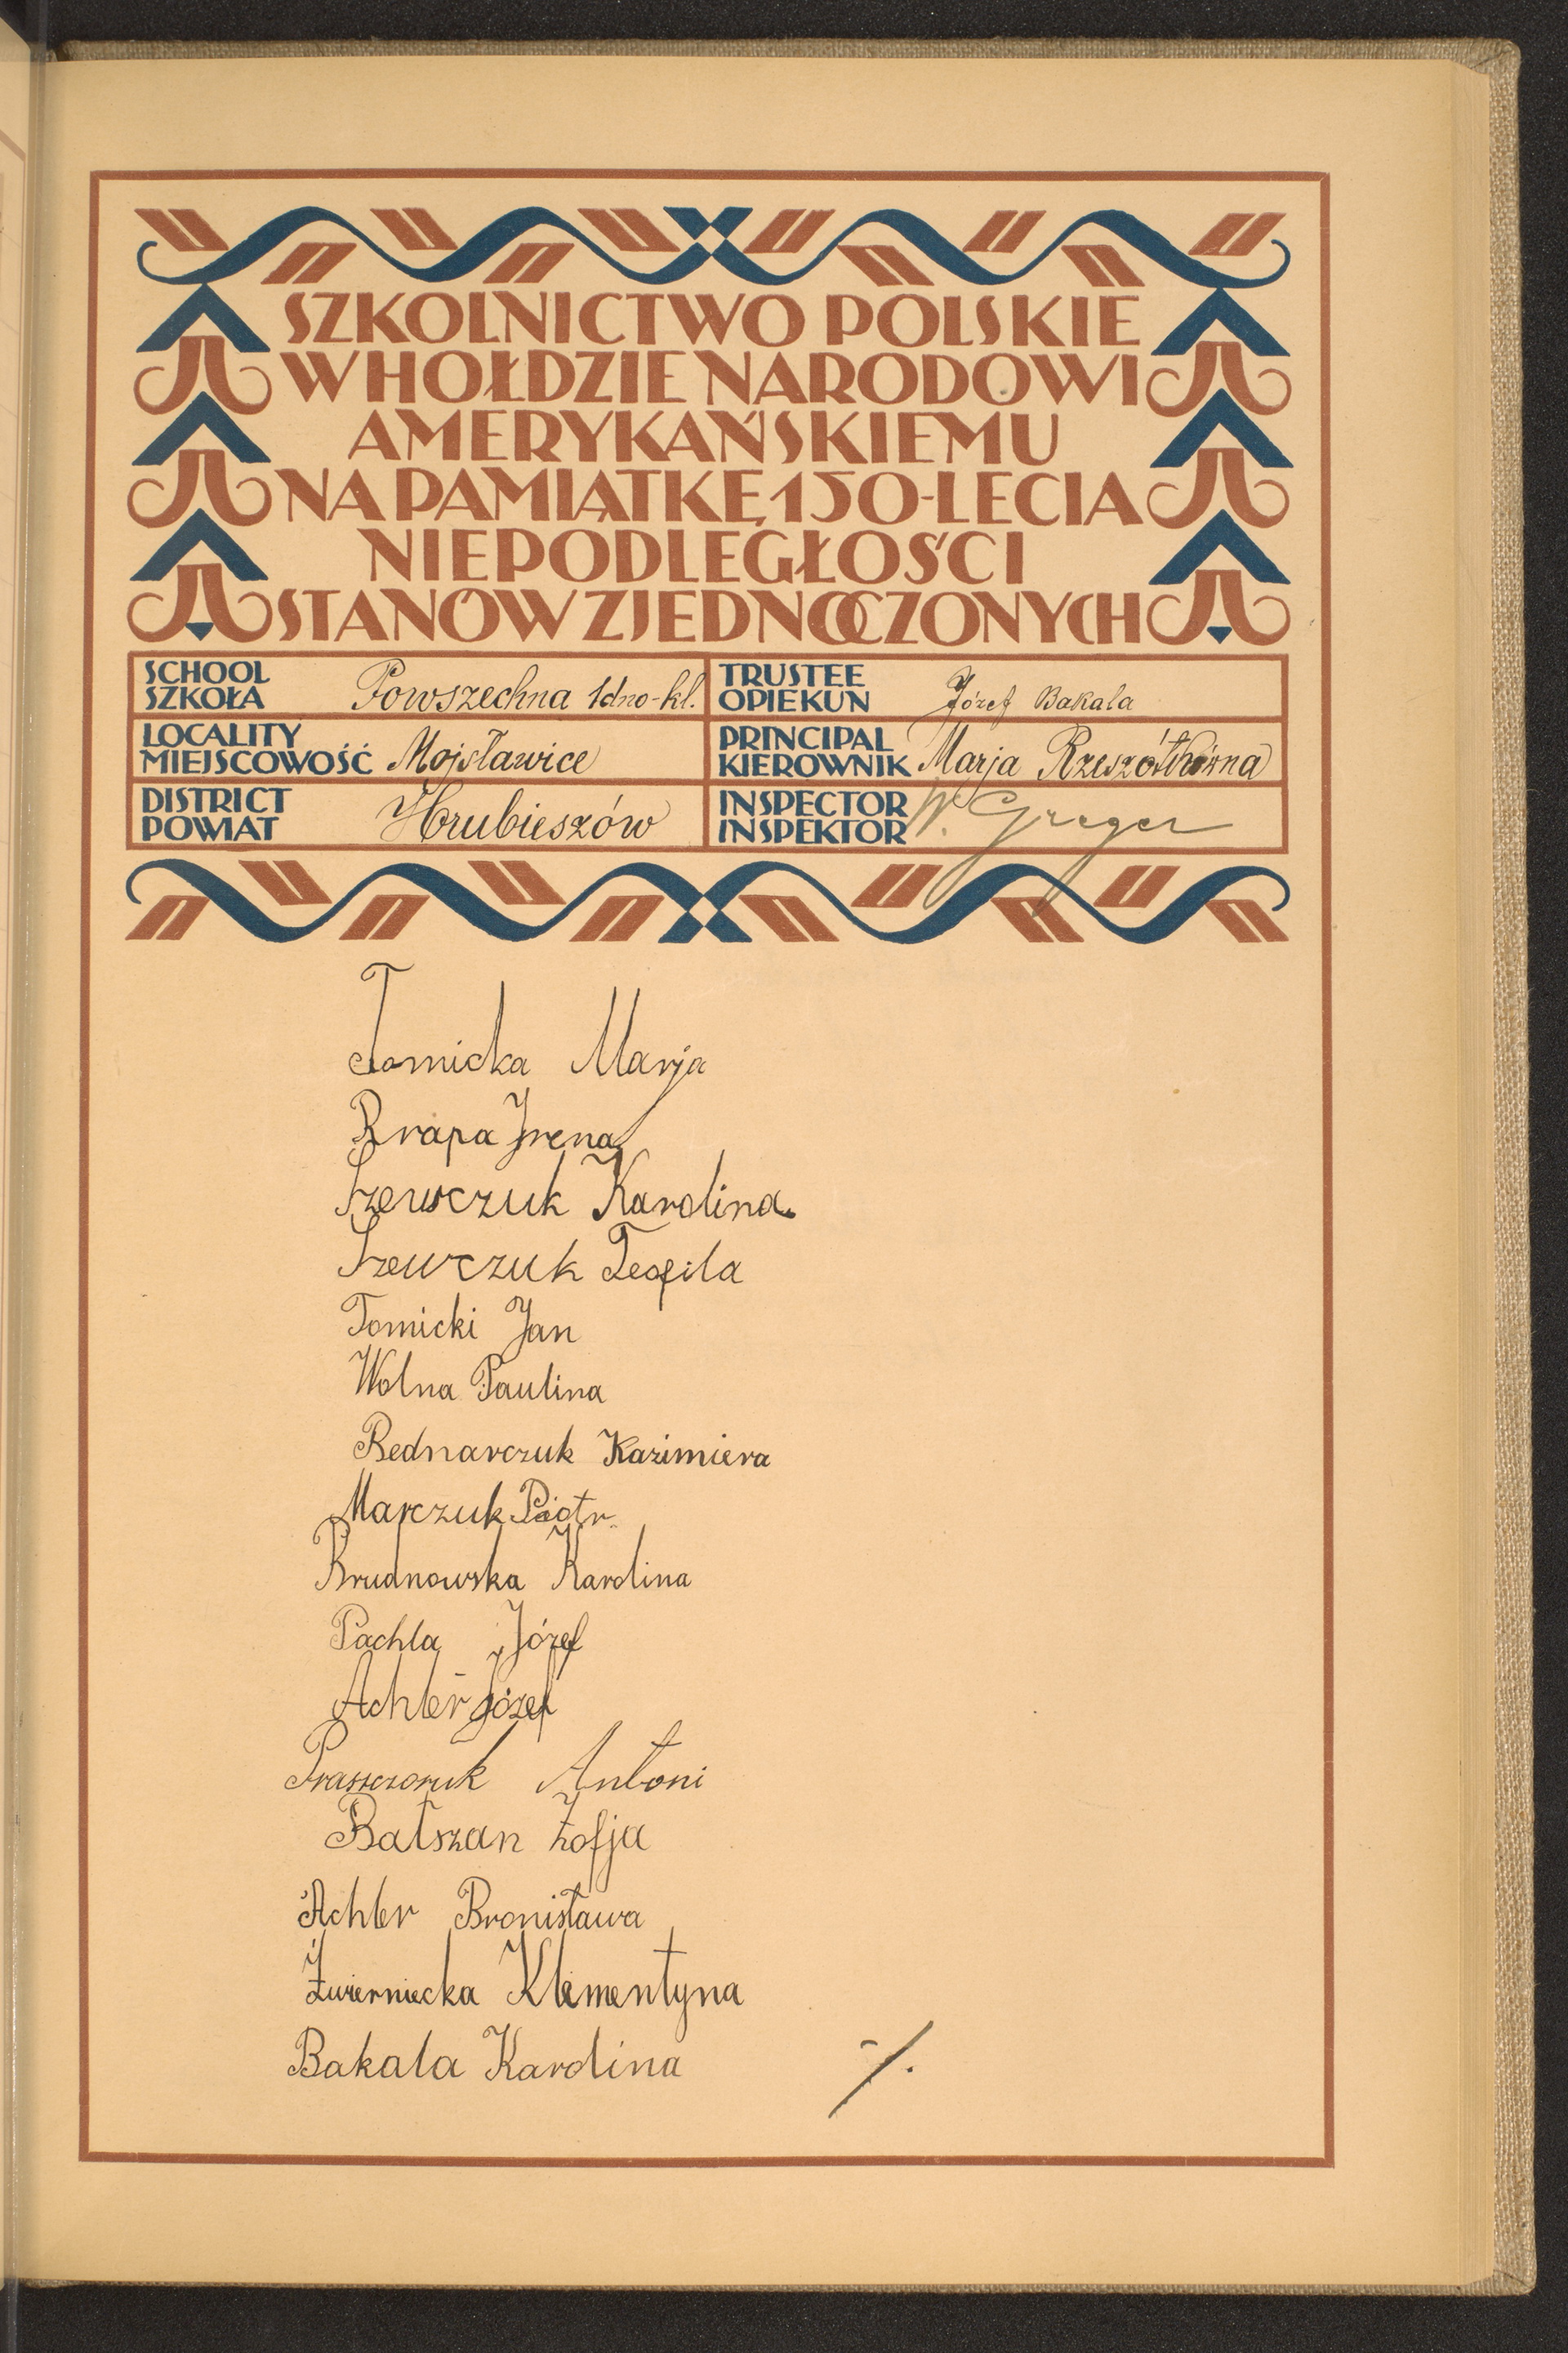 SZKOLNICTWO POLSKIE
W HOŁDZIE NARODOWI
AMERYKAŃSKIEMU
NA PAMIĄTKĘ 150-LECIA
NIEPODLEGŁOŚCI
STANÓW ZJEDNOCZONYCH
SCHOOL
SZKOŁA Powszechna 1dno-kl.
TRUSTEE
OPIEKUN Józef Bakala
LOCALITY
MIEJSCOWOŚĆ Mojsławice
PRINCIPAL
KIEROWNIK Marja
DISTRICT
POWIAT Hrubieszów
INSPECTOR
INSPEKTOR W. Greger
Tomicka Marja
Krapa Irena
Szewczuk Karolina
Szewczuk Teofila
Tomicki Jan
Wolna Paulina
Bednarczuk Kazimiera
Marczuk Piotr
Brudnowska Karolina
Pachla Józef
Achler Józef
Antoni
Bałszan Zofja
Achler Bronisława
Żwierniecka Klementyna
Bakala Karolina